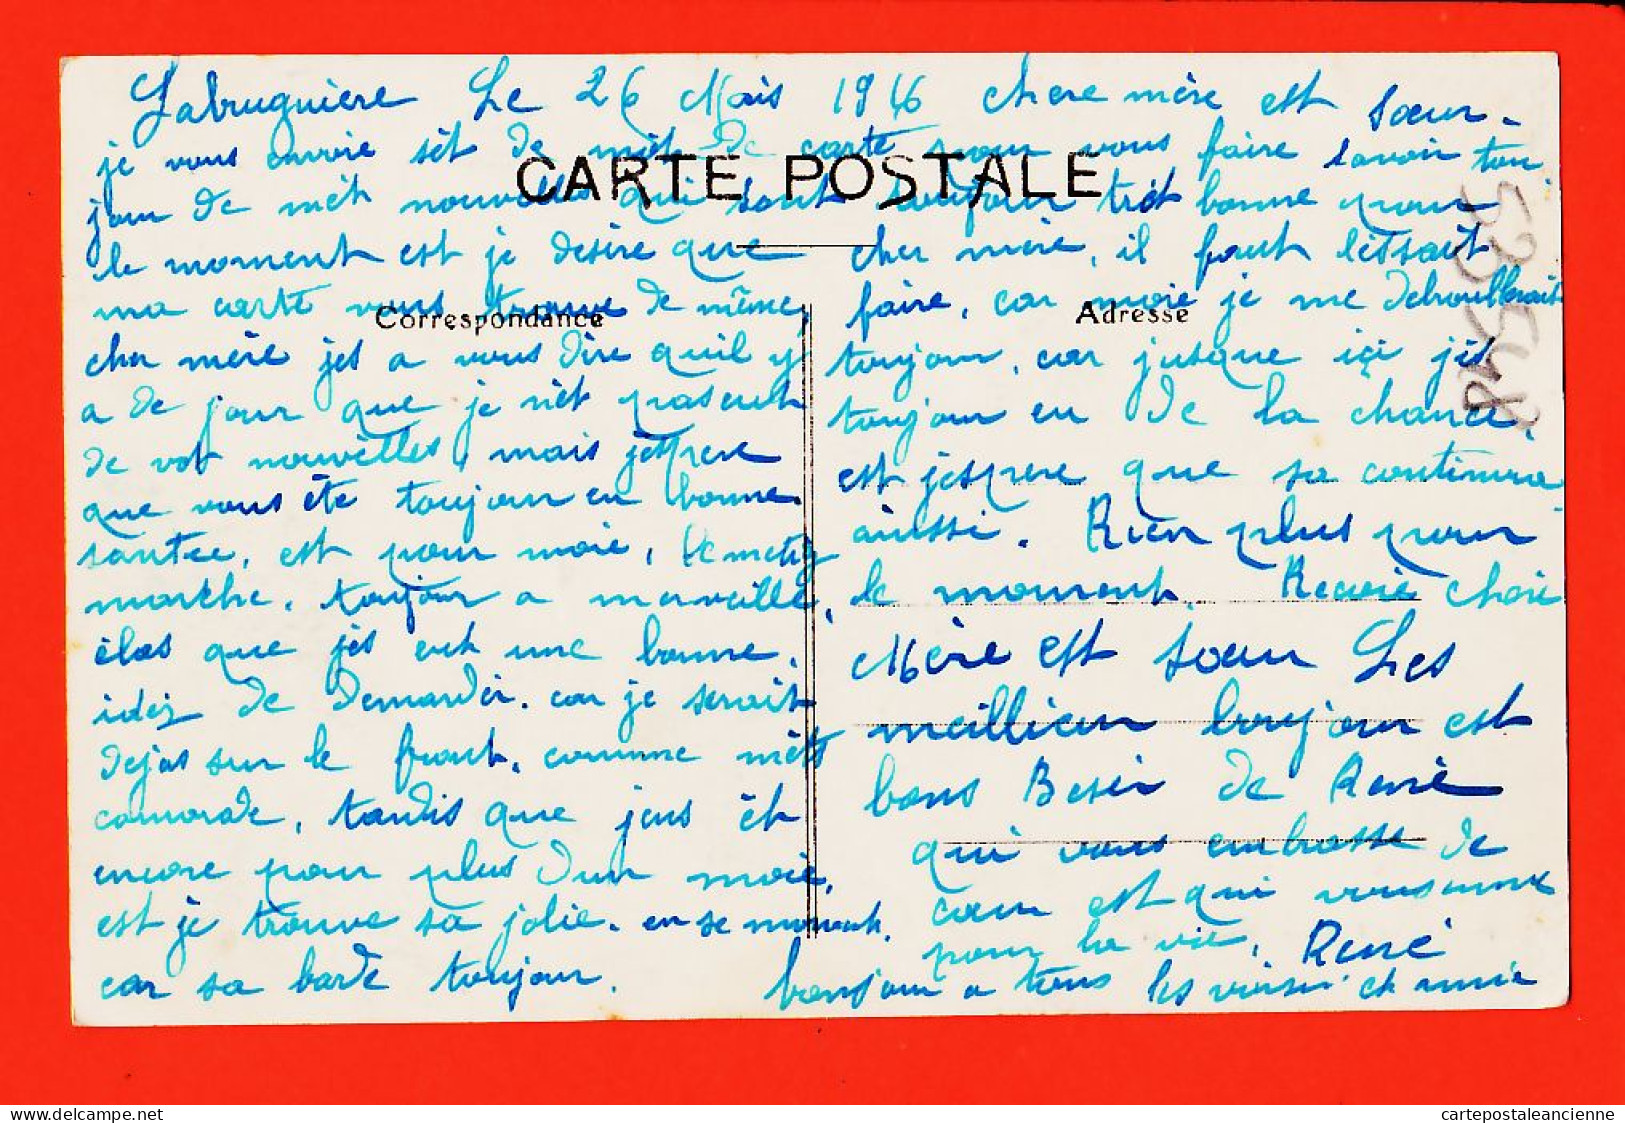 Labruguiere Le 26 Mais 1916 chere mère est sœur.
je vous envoie sèt de mèt De carte pour vous faire savoir tou
jour de mèt nouvelles qui sont toujour trèt bonne pour
le moment est je desire que
ma carte vous trouve de même,
cher mère jes a vous dire quil y
a de jour que je nèt pasent
de vot nouvèlles, mais jèspere
que vous ète toujour en bonne
santee, est pour moie, le metiez
marche, toujour a merveille,
èlas que jès eut une bonne,
idéz de demander. car je serait
dejas sur le front, comme mèts
camorade, tandis que jens èt
encore pour plus dun moie,
est je trouve sa jolie. en se moment,
car sa barde toujour.
CARTE POSTALE
Correspondance
Adresse
cher mère, il faut lèssait
faire, car moie je me debroullerait
toujour, car jusque içi jèt
toujour eu de la chance,
est jespere que sa continura
ainssi. Rien plus pour
le moment. Recoie chère
Mère est sœur Les
meillieur boujour est
bons Besér de René
qui vous embrasse de
cœur est qui vous aime
pour la vie, René
bonjour a tous les voisin et amie
53548
cartepostaleancienne